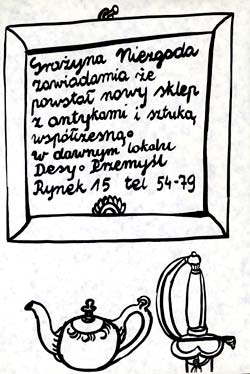 Grażyna Niezgoda
zawiadamia że
powstał nowy sklep
z antykami i sztuką
współczesną
w dawnym lokalu
Desy Przemyśl
Rynek 15 tel 54-79